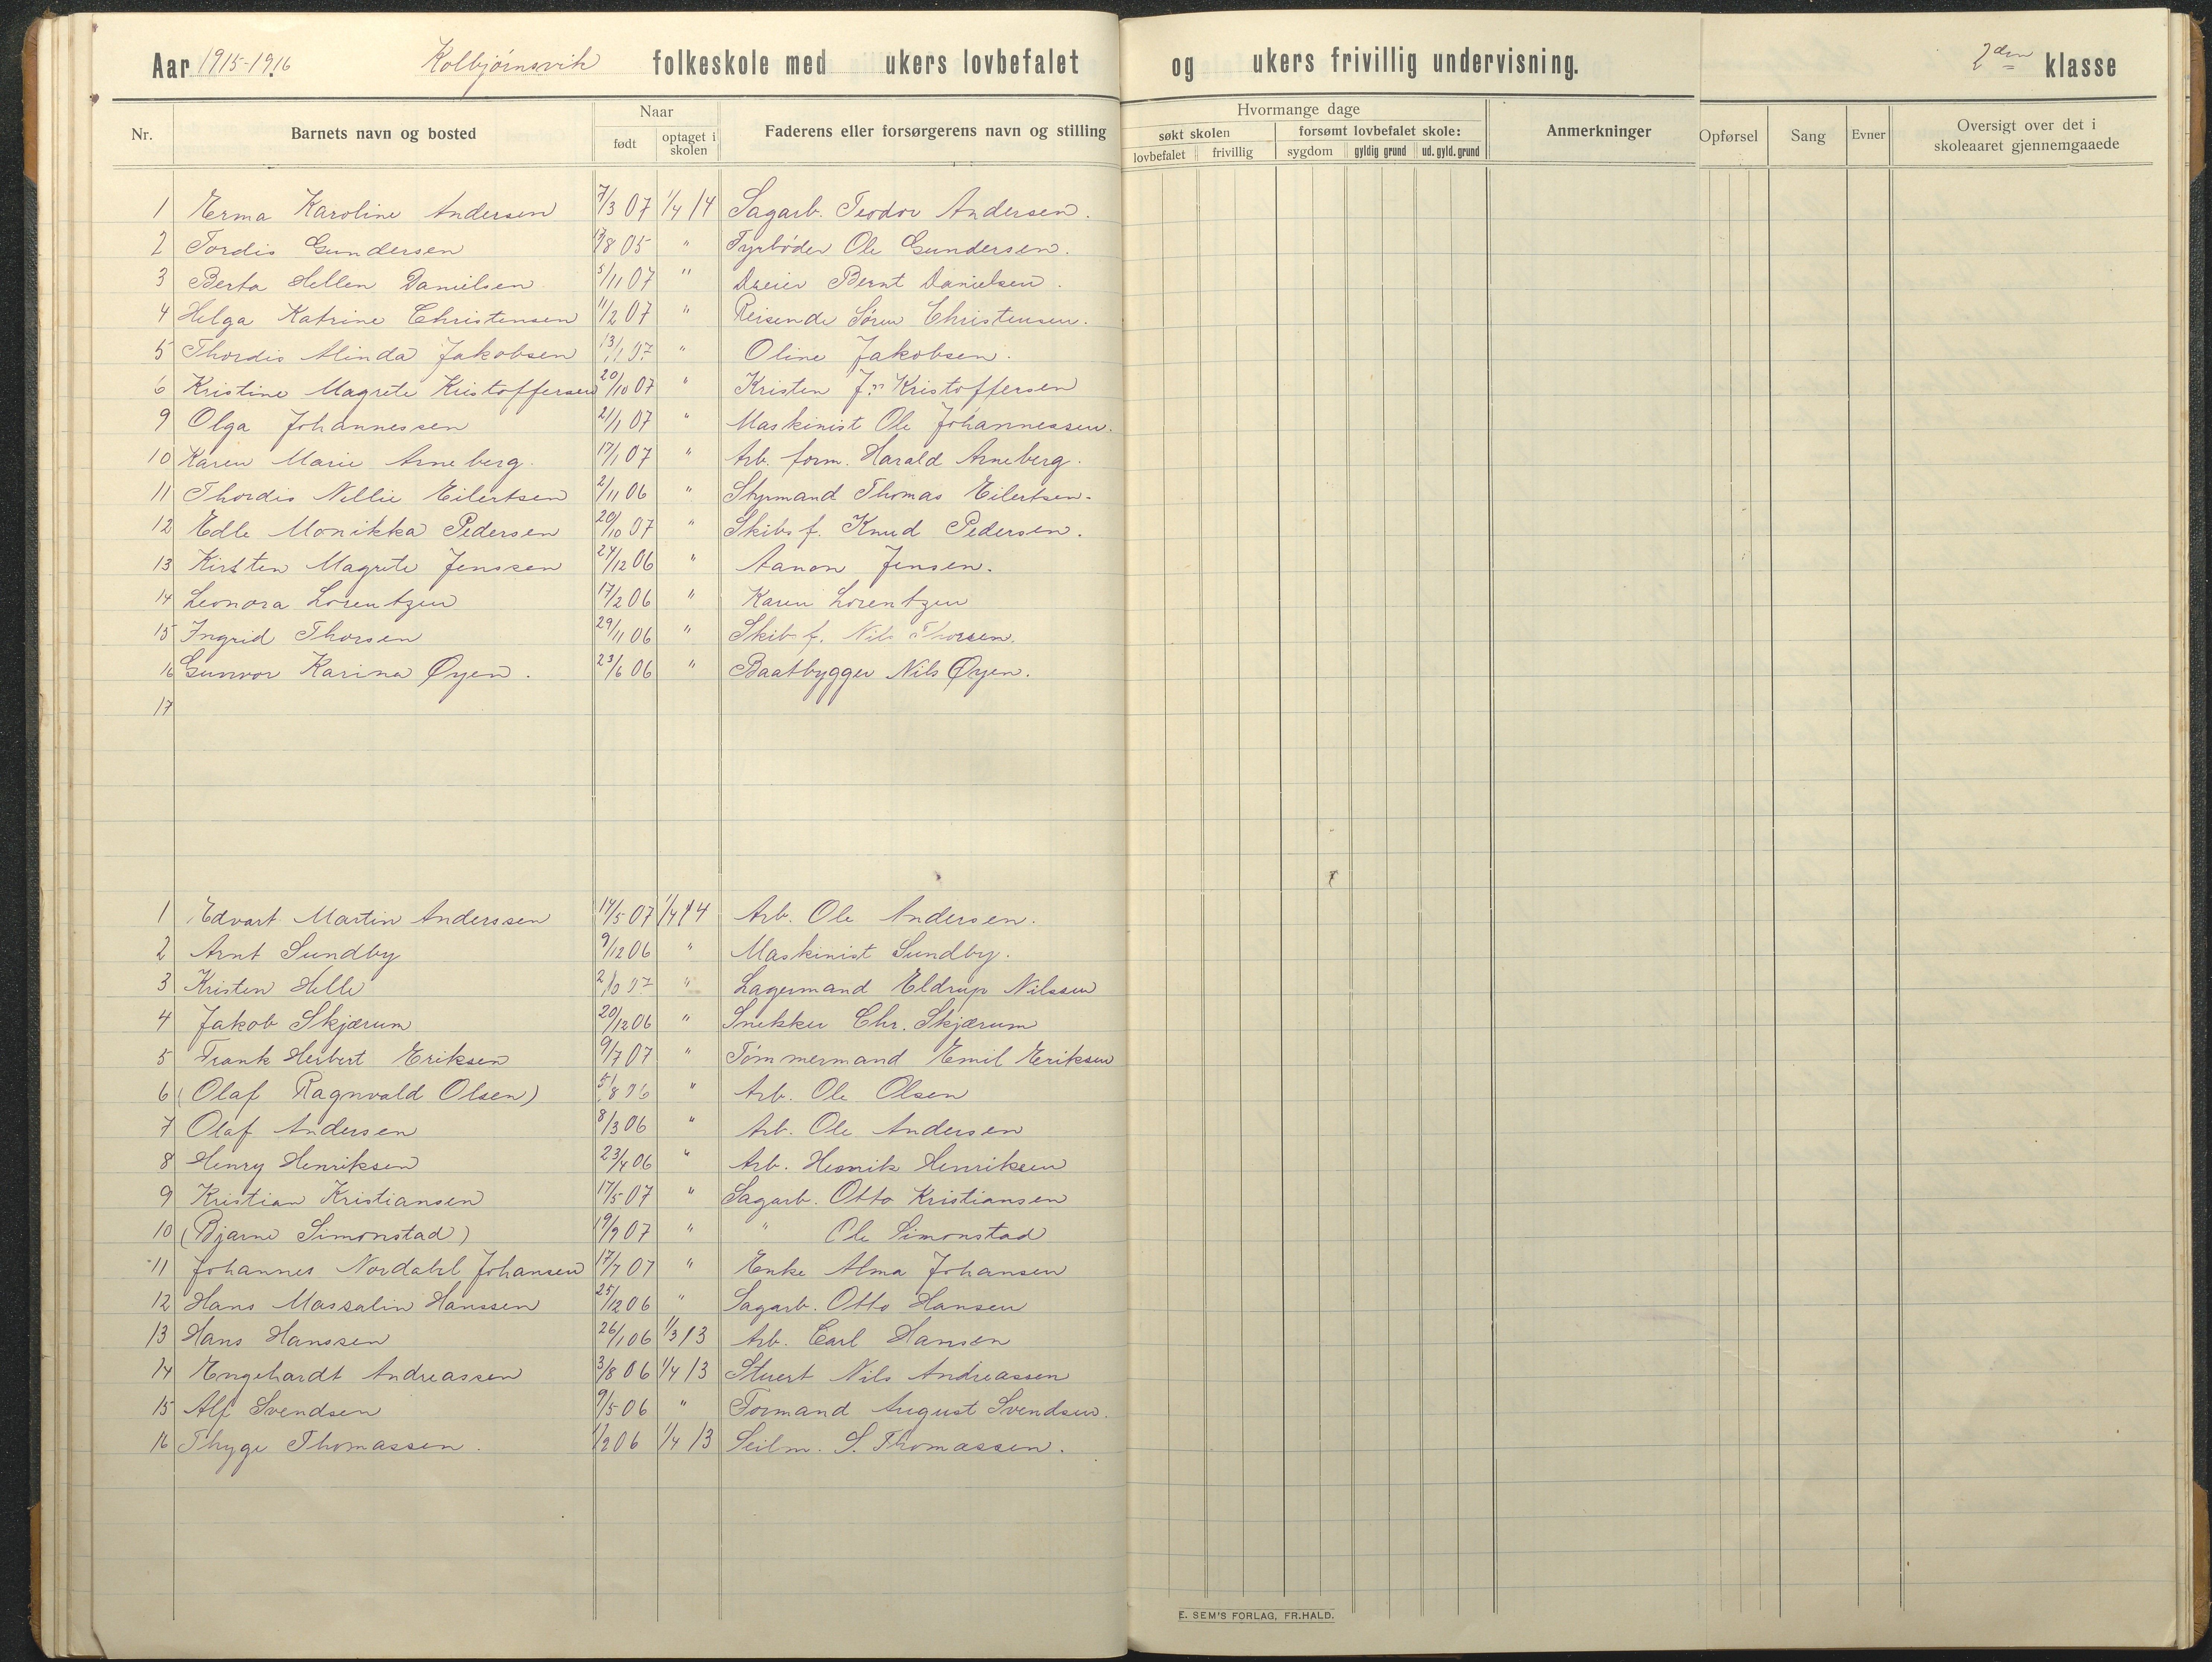 Aar 1915-1916 Kolbjørnsvik folkeskole med ukers lovbefalet og ukers frivillig undervisning. 2den klasse
Nr. Barnets navn og bosted Naar født optaget i skolen Faderens eller forsørgerens navn og stilling Hvormange dage søkt skolen lovbefalet frivillig forsømt lovbefalet skole: sygdom gyldig grund ud. gyld. grund Anmerkninger Opførsel Sang Evner Oversigt over det i skoleaaret gjennemgaaede
1 Erma Karoline Andersen 7/3 07 1/4 14 Sagarb. Teodor Andersen.
2 Tordis Gundersen /8 05 " Fyrbøder Ole Gundersen.
3 Berta Hellen Danielsen 5/11 07 " Dreier Bernt Danielsen.
4 Helga Katrine Christensen 11/2 07 " Reisende Søren Christensen.
5 Thordis Alinda Jakobsen 13/1 07 " Oline Jakobsen.
6 Kristine Magrete Kristoffersen 20/10 07 " Kristen J. Kristoffersen
9 Olga Johannessen 21/1 07 " Maskinist Ole Johannessen.
10 Karen Marie Arneberg. 17/1 07 " Arb. form. Harald Arneberg.
11 Thordis Nellie Eilertsen 2/11 06 " Styrmand Thomas Eilertsen.
12 Edle Monikka Pedersen 20/10 07 " Skibsf. Knud Pedersen.
13 Kirsten Magrete Jenssen 24/12 06 " Aanon Jensen.
14 Leonora Lorentzen 17/2 06 " Karen Lorentzen
15 Ingrid Thorsen 29/11 06 " Skibsf. Nils Thorsen.
16 Gunvor Karina Øyen. 23/6 06 " Baatbygger Nils Øyen.
17
1 Edvart Martin Anderssen 14/5 07 1/4 14 Arb. Ole Andersen.
2 Arnt Sundby 9/12 06 " Maskinist Sundby.
3 Kristen Helle 07 " Lagermand Eldrup Nilssen
4 Jakob Skjærum 20/12 06 " Snekker Chr. Skjærum
5 Frank Herbert Eriksen 9/7 07 " Tømmermand Emil Eriksen
6 (Olaf Ragnvald Olsen) 5/8 06 " Arb. Ole Olsen
7 Olaf Andersen 8/3 06 " Arb. Ole Andersen
8 Henry Henriksen 23/4 06 " Arb. Henrik Henriksen
9 Kristian Kristiansen 17/5 07 " Sagarb. Otto Kristiansen
10 (Bjarne Simonstad) 19/9 07 " " Ole Simonstad
11 Johannes Nordahl Johansen 17/7 07 " Enke Alma Johansen
12 Hans Massalin Hanssen 25/12 06 " Sagarb. Otto Hansen
13 Hans Hanssen 26/1 06 1/3 13 Arb. Carl Hansen
14 Engehardt Andreassen 3/8 06 1/4 13 Stuert Nils Andreassen
15 Alf Svendsen 9/5 06 " Formand August Svendsen.
16 Thyge Thomassen. 1/2 06 1/4 13 Seilm. S. Thomassen.
E. SEM'S FORLAG, FR.HALD.